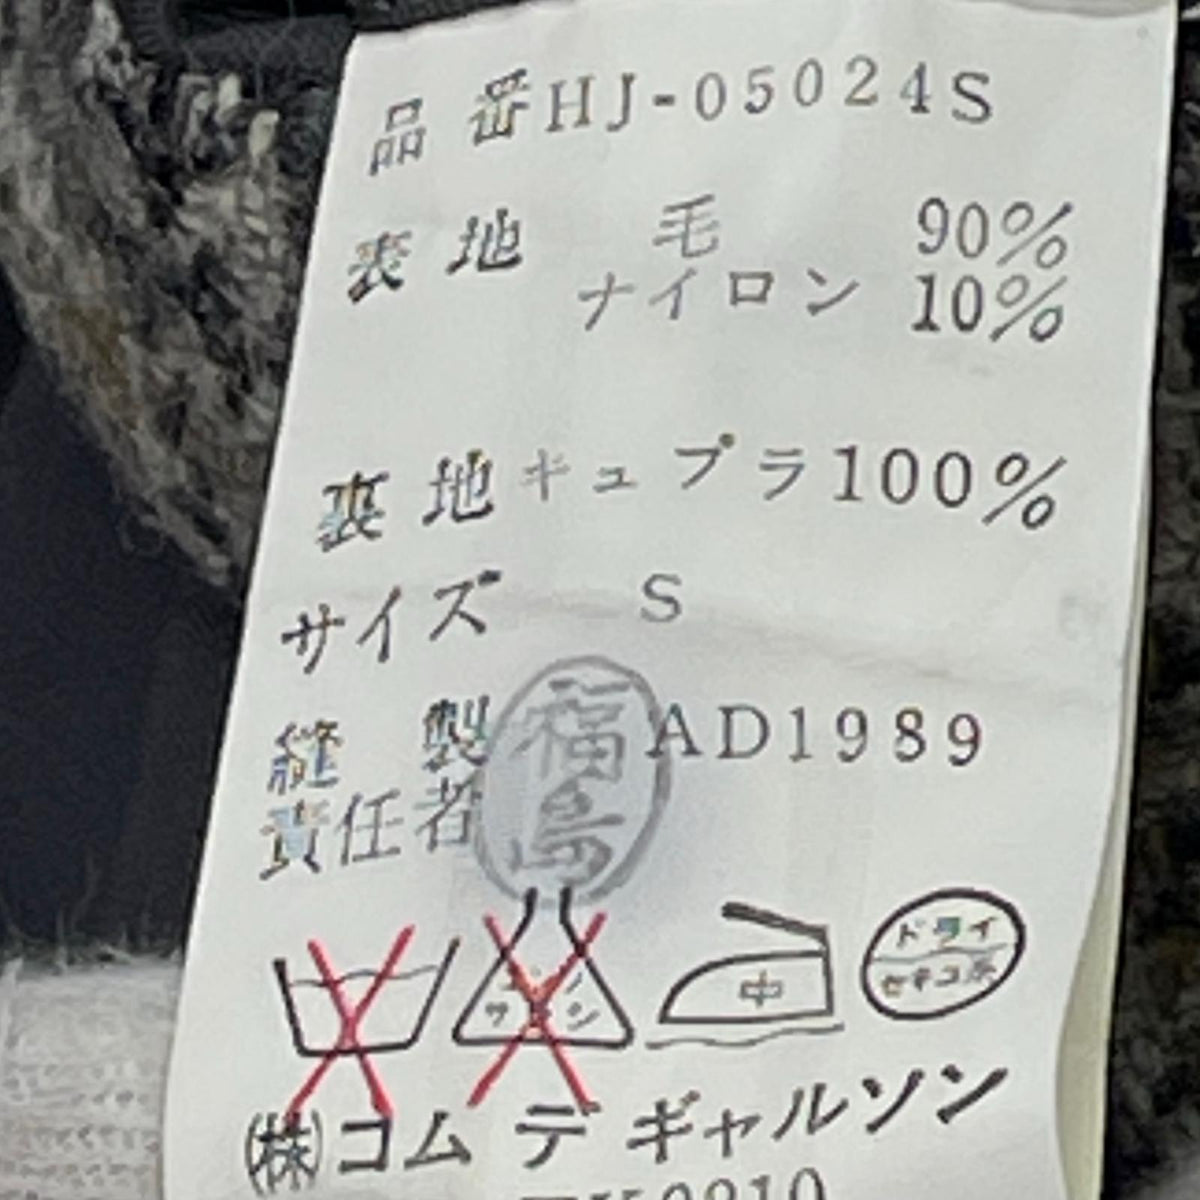 品番HJ-05024S
表地 毛 90%
ナイロン 10%
裏地キュプラ100%
サイズ S
縫製 AD1989
責任者
福島
エンソサラシ
中
ドライ
セキユ系
㈱コムデギャルソン